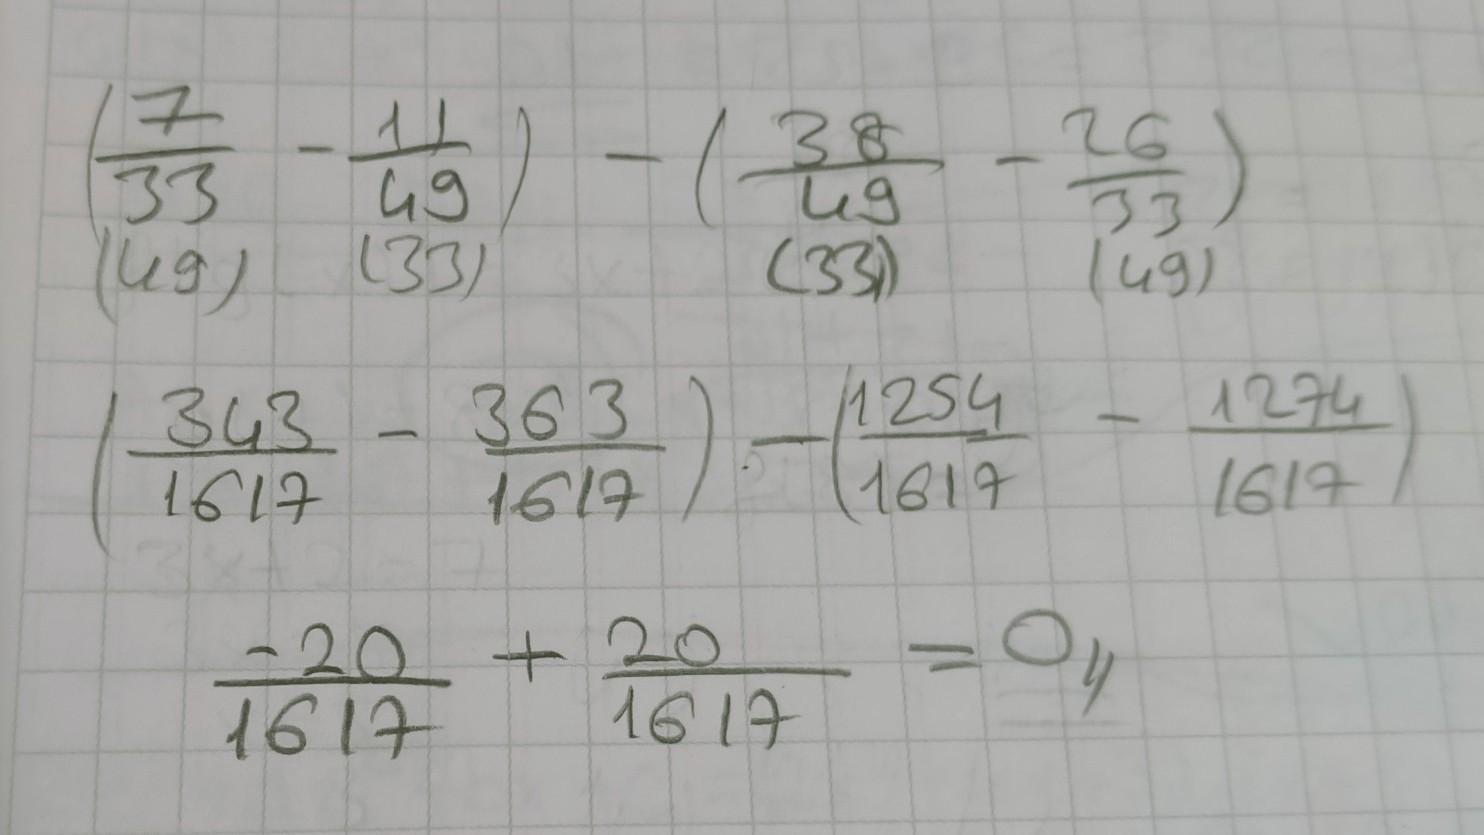 (7/33 - 11/49) - (38/49 - 26/33)
(49) (33) (33) (49)
(343/1617 - 363/1617) - (1254/1617 - 1274/1617)
-20/1617 + 20/1617 = 0,,